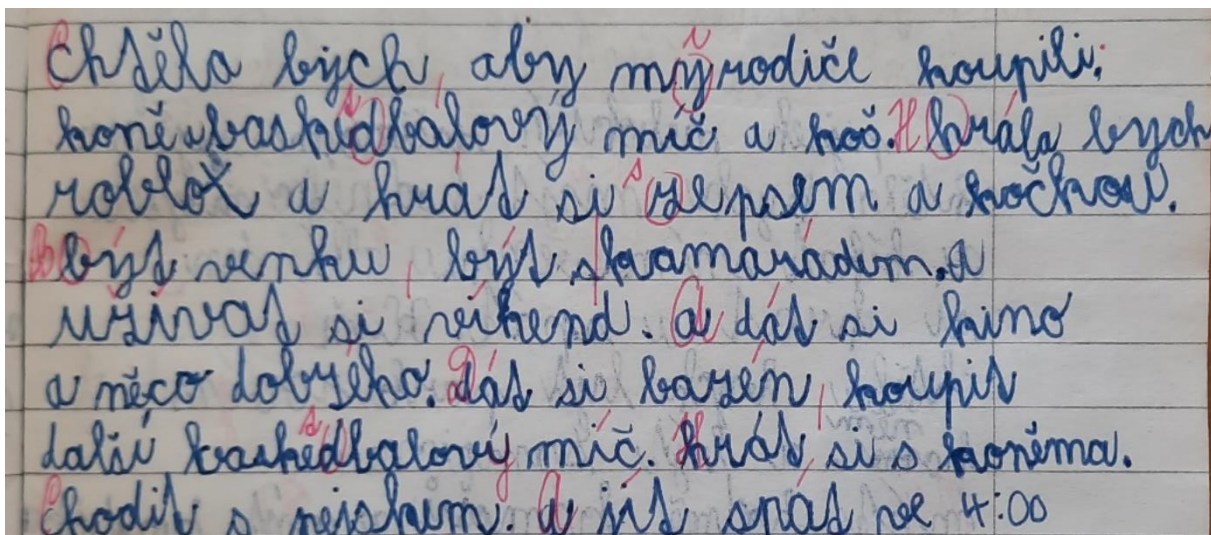 Chtěla bych, aby mý rodiče koupili:
koně a baskedbalový míč a koš. Hrála bych
roblox a hrát si ze psem a kočkou.
být venku, být s kamarádim. a
užívat si víkend. a dát si kino
a něco dobrého. dát si bazén, koupit
další baskedbalový míč. hrát si s koněma.
Chodit s pejskem. a jít spát ve 4:00